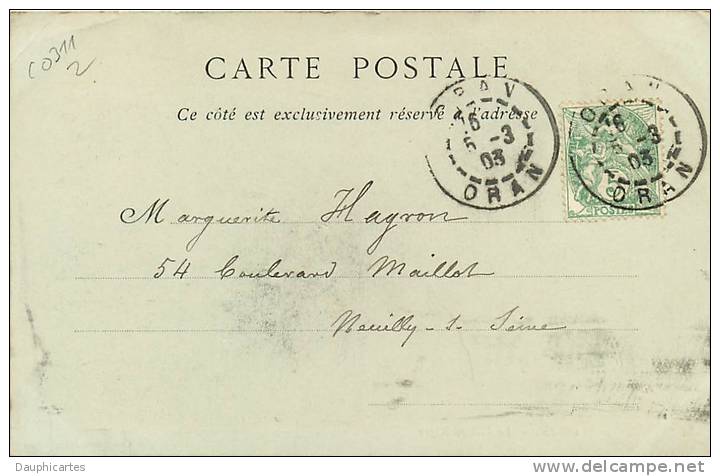 CO311
2
CARTE POSTALE
Ce côté est exclusivement réservé à l'adresse
ORAN
16
5 -3
03
ORAN
-3
03
POSTES
Marguerite Hayron
54 Boulevard Maillot
Neuilly-s-Seine
Dauphicartes
http://www.delcampe.net